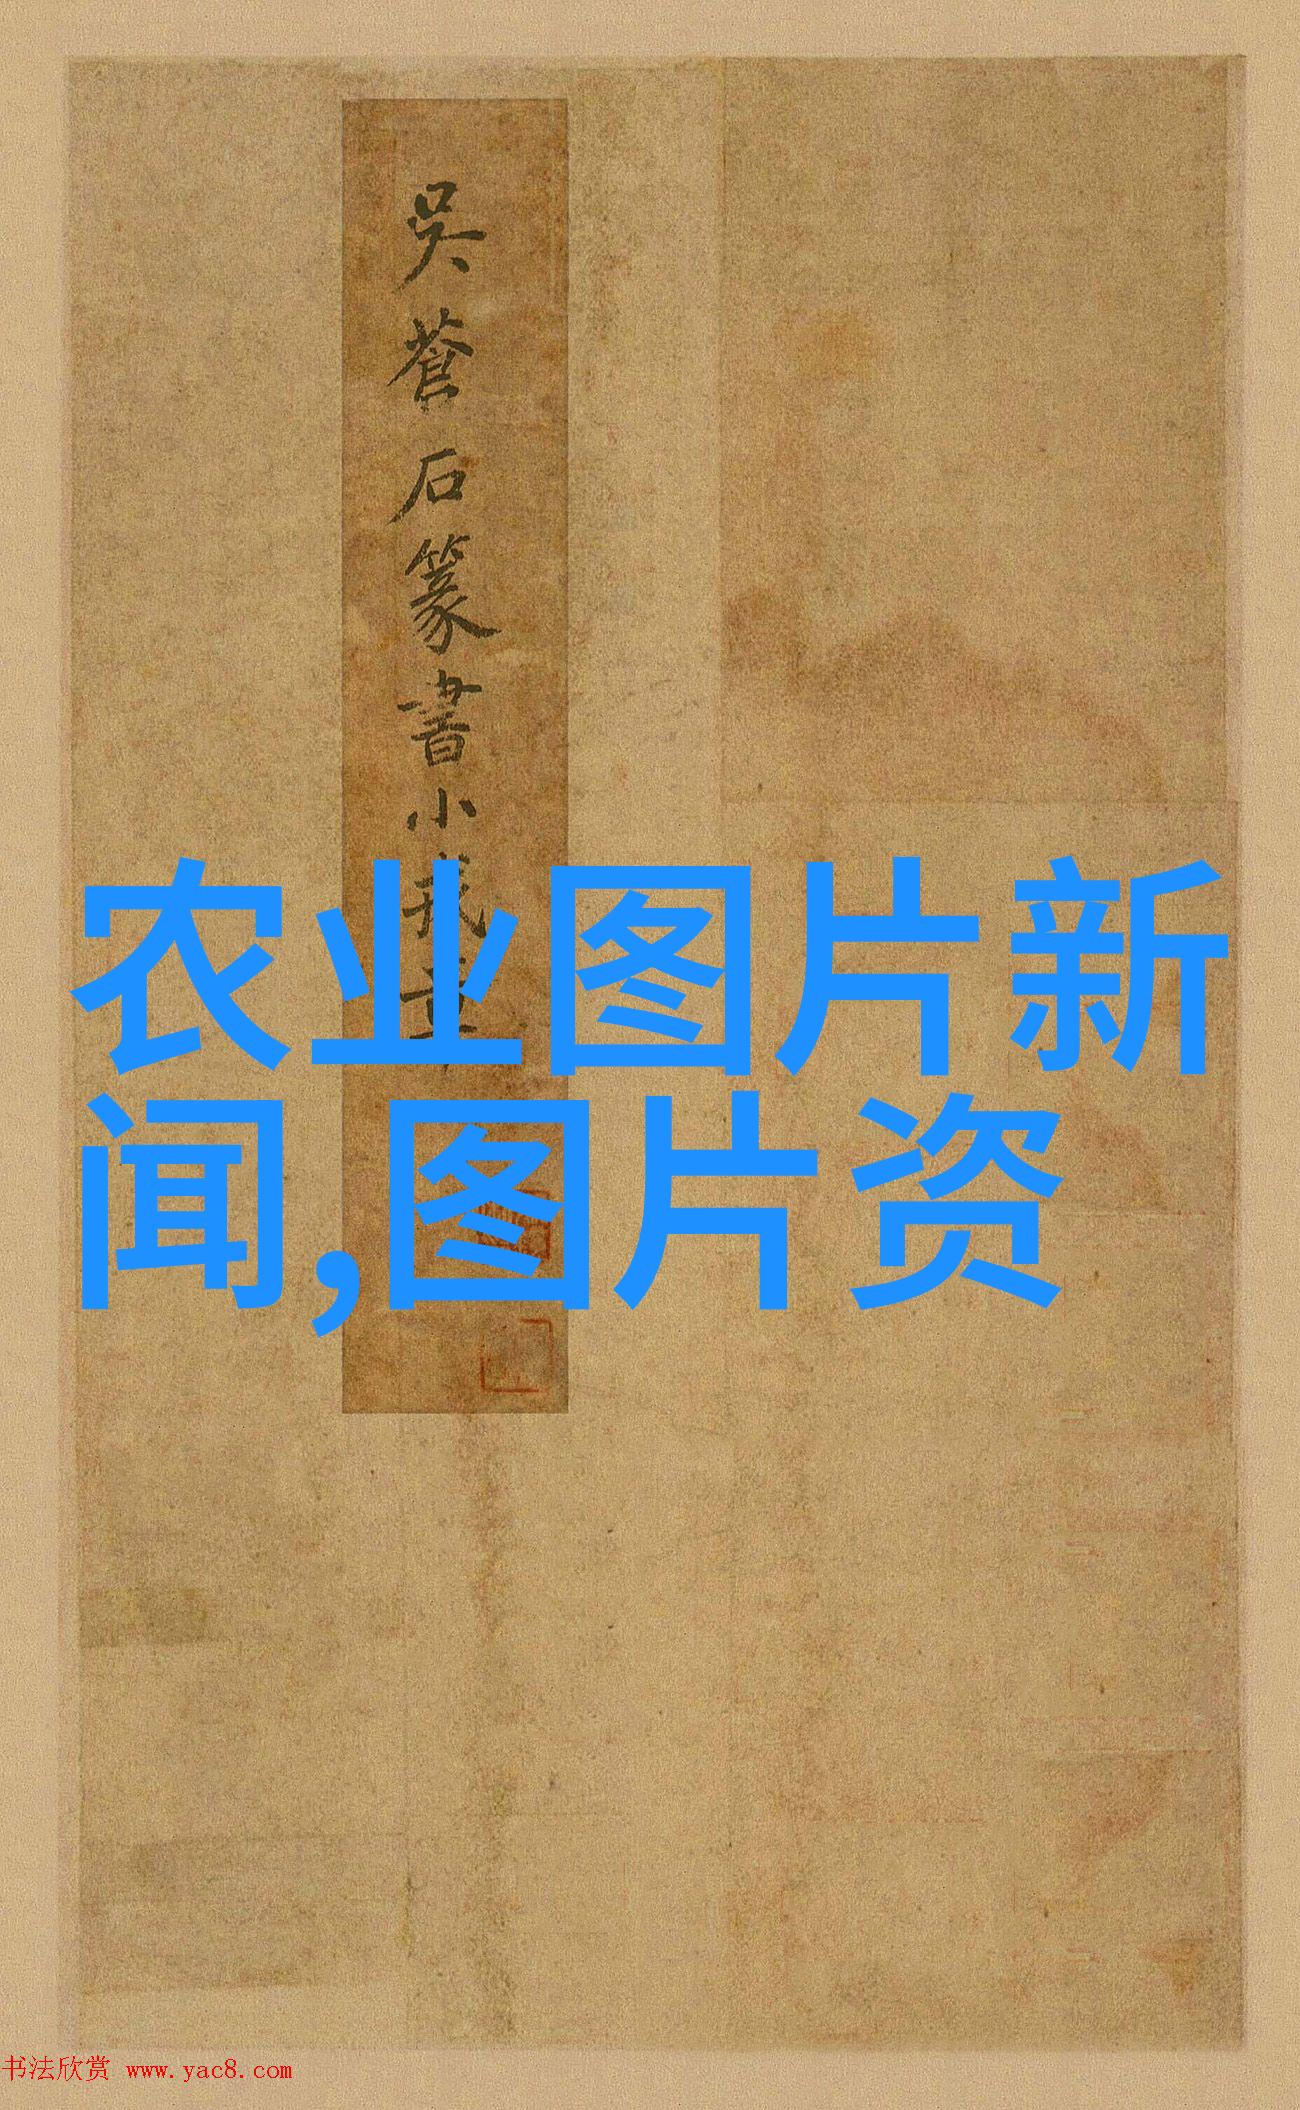 吳蒼石篆書小戎章
农业图片新
闻,图片资
书法欣赏 www.yac8.com